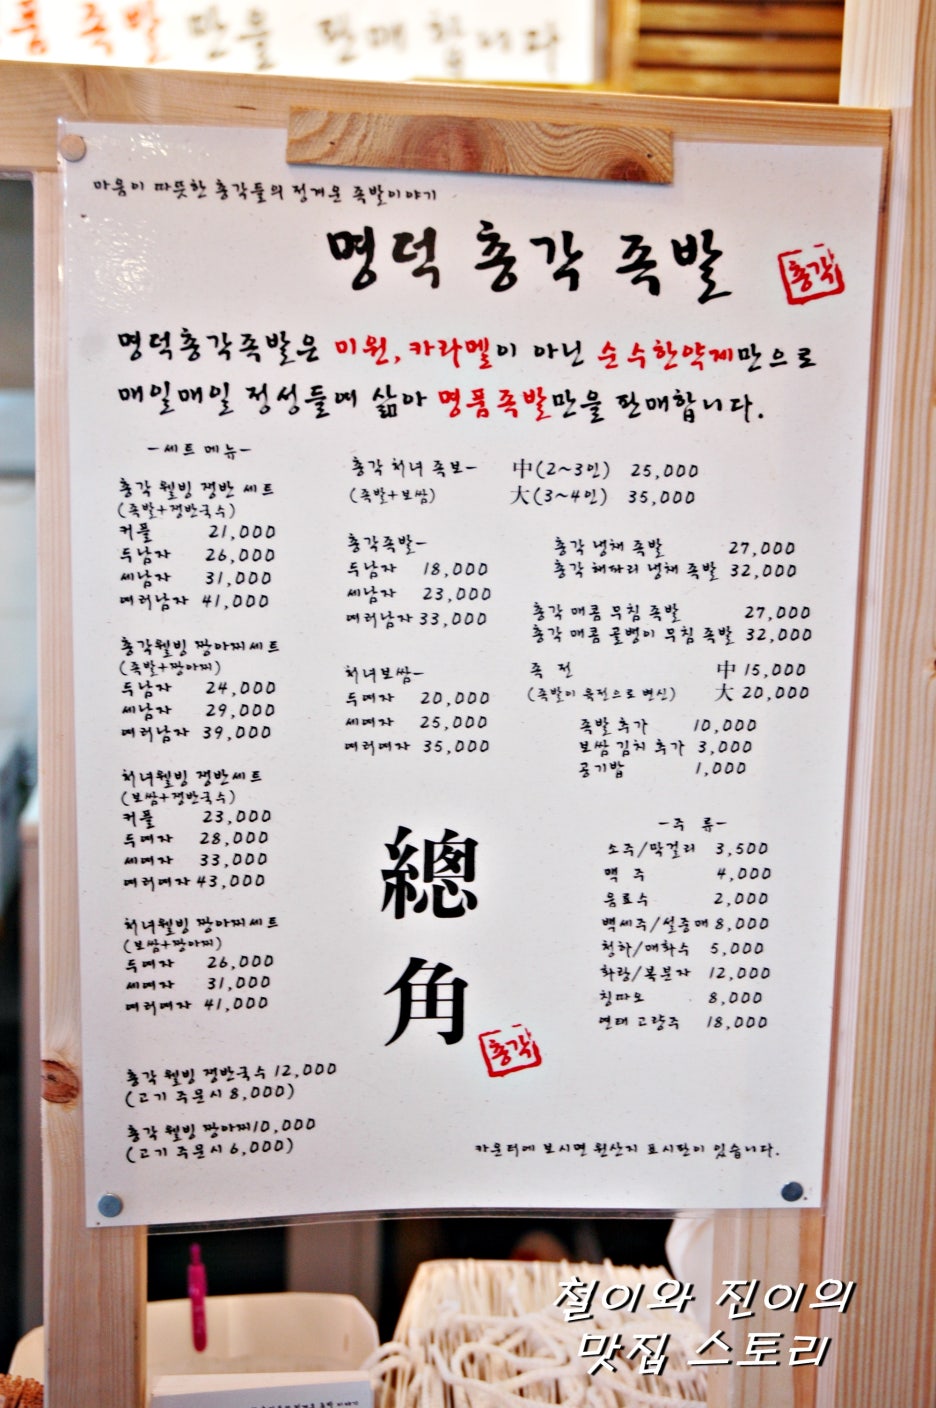 품 족발만을 판매합니다
마음이 따뜻한 총각들의 정겨운 족발이야기
명덕 총각 족발
총각
명덕총각족발은 미원, 카라멜이 아닌 순수한약제만으로
매일매일 정성들여 삶아 명품족발만을 판매합니다.
-세트 메뉴-
총각 웰빙 쟁반 세트
(족발+쟁반국수)
커플 21,000
두남자 26,000
세남자 31,000
여러남자 41,000
총각웰빙 짱아찌세트
(족발+짱아찌)
두남자 24,000
세남자 29,000
여러남자 39,000
처녀웰빙 쟁반세트
(보쌈+쟁반국수)
커플 23,000
두여자 28,000
세여자 33,000
여러여자 43,000
처녀웰빙 짱아찌세트
(보쌈+짱아찌)
두여자 26,000
세여자 31,000
여러여자 41,000
총각 웰빙 쟁반국수 12,000
(고기 주문시 8,000)
총각 웰빙 짱아찌 10,000
(고기 주문시 6,000)
총각 처녀 족보- 中(2~3인) 25,000
(족발+보쌈) 大(3~4인) 35,000
총각족발-
두남자 18,000
세남자 23,000
여러남자 33,000
처녀보쌈-
두여자 20,000
세여자 25,000
여러여자 35,000
총각 냉채 족발 27,000
총각 해파리 냉채 족발 32,000
총각 매콤 무침 족발 27,000
총각 매콤 골뱅이 무침 족발 32,000
족 전 中 15,000
(족발이 육전으로 변신) 大 20,000
족발 추가 10,000
보쌈 김치 추가 3,000
공기밥 1,000
總
角
총각
-주 류-
소주/막걸리 3,500
맥 주 4,000
음료수 2,000
백세주/설중매 8,000
청하/매화수 5,000
화랑/복분자 12,000
칭따오 8,000
연태 고량주 18,000
카운터에 보시면 원산지 표시판이 있습니다.
철이와 진이의
맛집 스토리